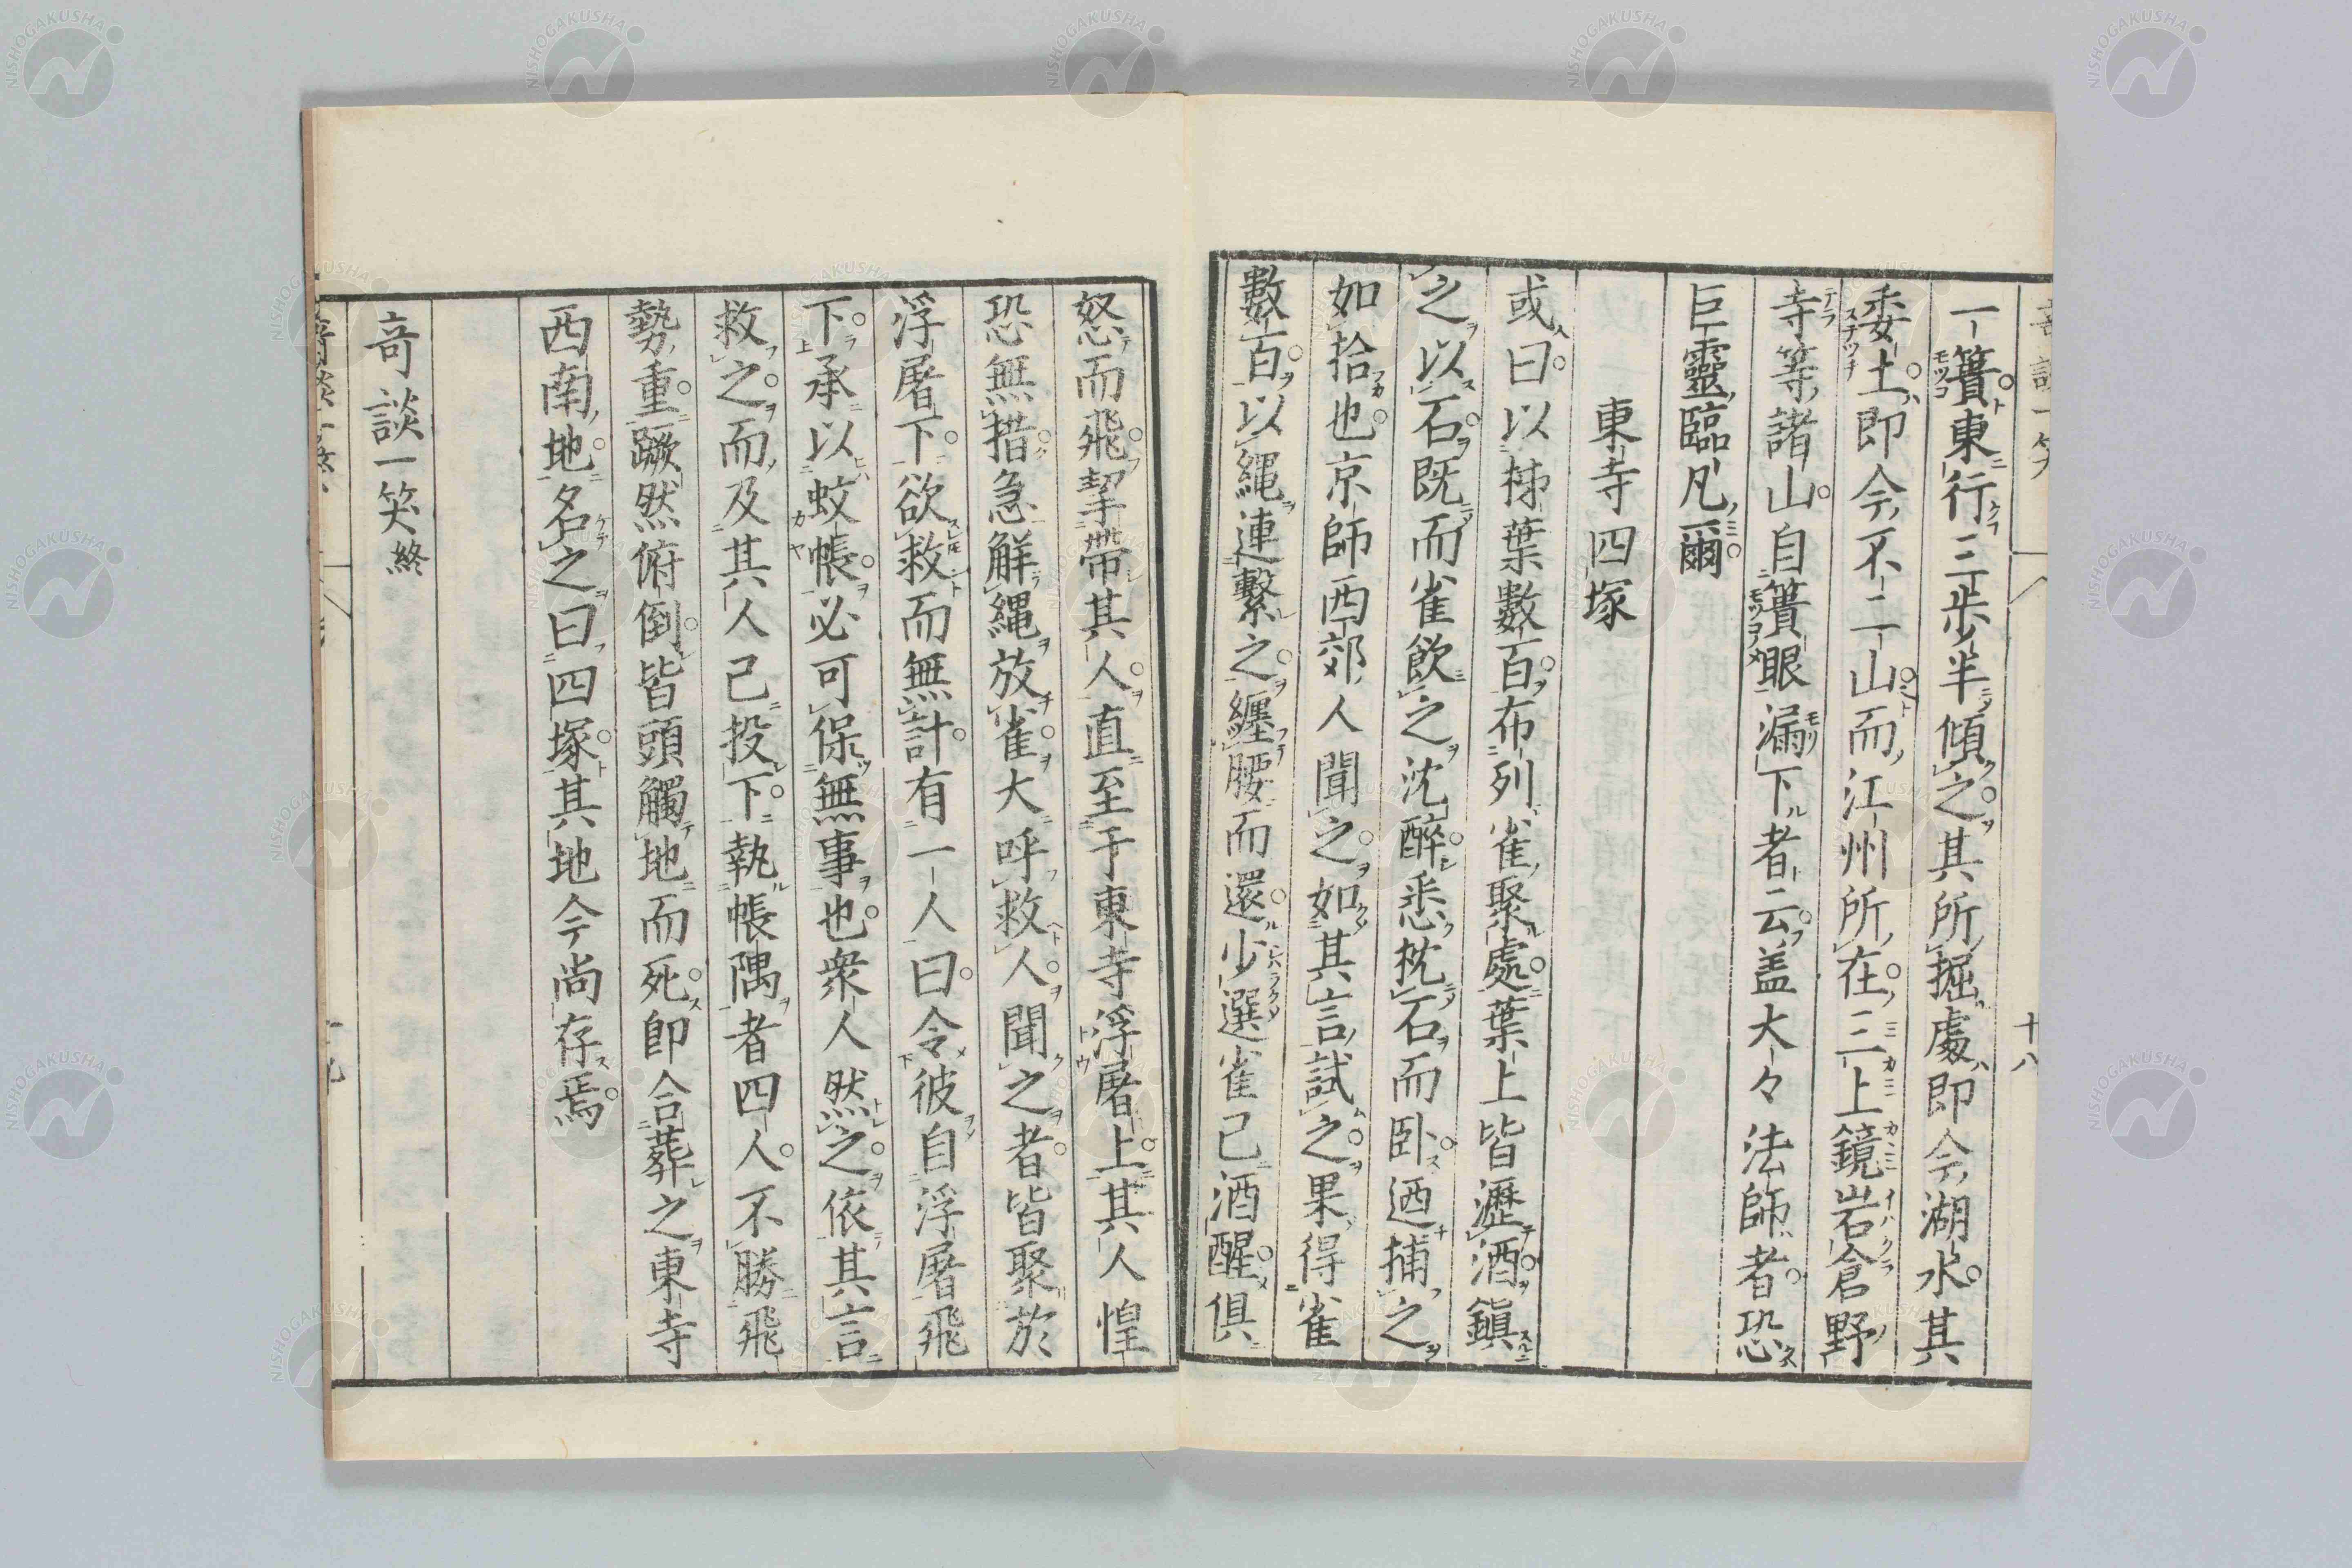 一簣東行三步半傾之其所掘處即今湖水其
委土即今不二山而江州所在三上鏡岩倉野
寺等諸山自簣眼漏下者云盖大々法師者恐
巨靈臨凡爾
東寺四塚
或曰以柹葉數百布列雀聚處葉上皆瀝酒鎭
之以石既而雀飮之沈醉悉枕石而卧迺捕之
如拾也京師西郊人聞之如其言試之果得雀
數百以繩連繫之纏腰而還少選雀已酒醒俱
怒而飛挈帶其人直至于東寺浮屠上其人惶
恐無措急解繩放雀大呼救人聞之者皆聚於
浮屠下欲救而無計有一人曰令彼自浮屠飛
下承以蚊帳必可保無事也衆人然之依其言
救之而及其人已投下執帳隅者四人不勝飛
勢重蹶然俯倒皆頭觸地而死即合葬之東寺
西南地名之曰四塚其地今尚存焉
竒談一笑終